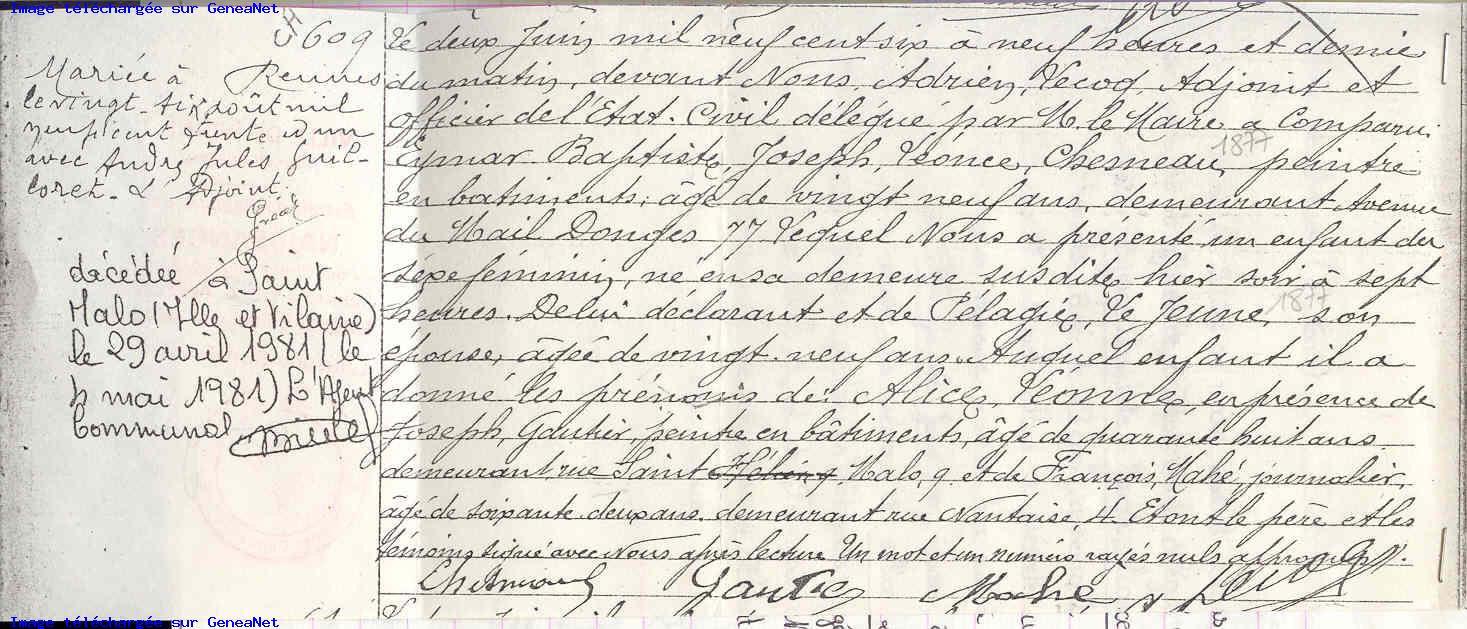 Image téléchargée sur GeneaNet
609
Mariée à Rennes
le vingt-six août mil
neuf cent trente et un
avec André Jules Guil-
loret. L'Adjoint.
décédée à Saint
Malo (Ille et Vilaine)
le 29 avril 1981 (le
mai 1981) L'Agent
Communal
Le deux Juin mil neuf cent six à neuf heures et demie
du matin, devant Nous, Adrien, Lecoq, Adjoint et
officier de l'Etat-Civil délégué par M. le Maire, a Comparu
Eymar Baptiste, Joseph, Léonce, Chesneau, peintre
1877
en batiments, âgé de vingt neuf ans, demeurant Avenue
du Mail Donges 77 Lequel Nous a présenté un enfant du
sexe féminin, né en sa demeure susdite, hier soir à sept
heures. De lui déclarant et de Pélagie, Le Jeune, son
1877
épouse, âgée de vingt-neuf ans. Auquel enfant il a
donné les prénoms de: Alice, Léonne, en présence de
Joseph, Gautier, peintre en bâtiments, âgé de quarante huit ans
demeurant rue Saint Malo, 9 et de François, Mahé, journalier,
âgé de soixante-deux ans, demeurant rue Nantaise, 4. Et ont le père et les
témoins signé avec Nous après lecture Un mot et un numéro rayés nuls approuvés.
Chesneau Gautier Mahé
Image téléchargée sur GeneaNet